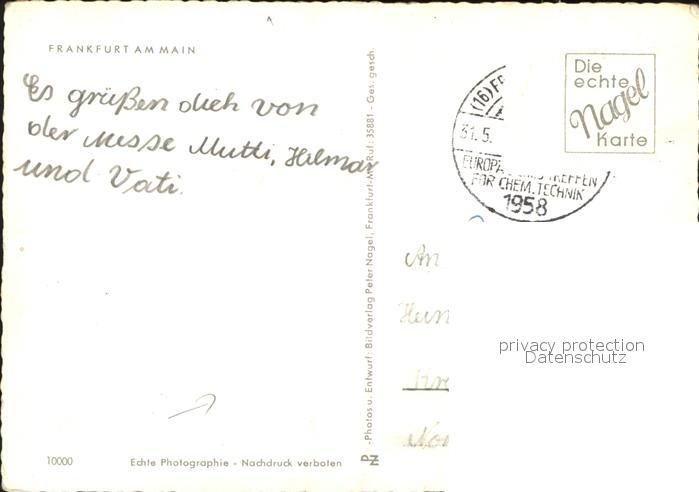 FRANKFURT AM MAIN
Es grüßen dich von
der Messe Mutti, Helmar
und Vati.
10000
Echte Photographie - Nachdruck verboten
-Photos u. Entwurf: Bildverlag Peter Nagel, Frankfurt-M. Ruf: 35881 - Ges. gesch.
(16) FR
31.5.
EUROPÄ TREFFEN
FÜR CHEM. TECHNIK
1958
Die
echte
Nagel
Karte
An
privacy protection
Datenschutz